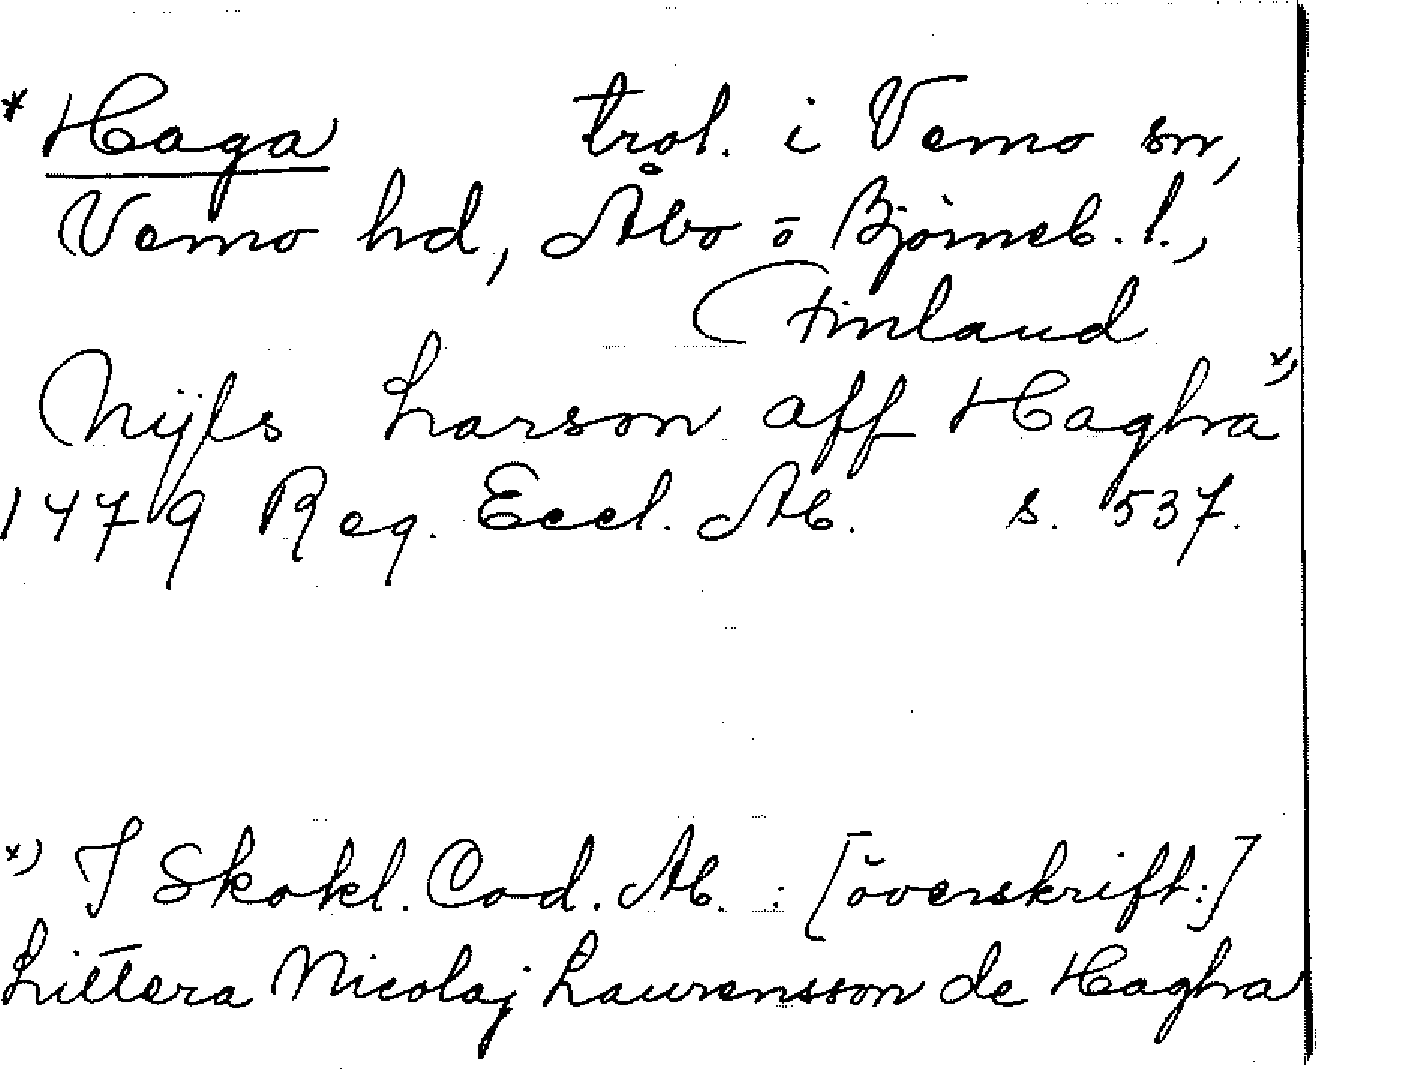 * Haga trol. i Vemo sn,
Vemo hd, Åbo o Björneb. l.,
Finland
Nijls Larson aff Hagha *)
1479 Reg. Eccl. Ab. s. 537.
*) I Skokl. Cod. Ab. : [överskrift:]
Littera Nicolaj Laurensson de Hagha